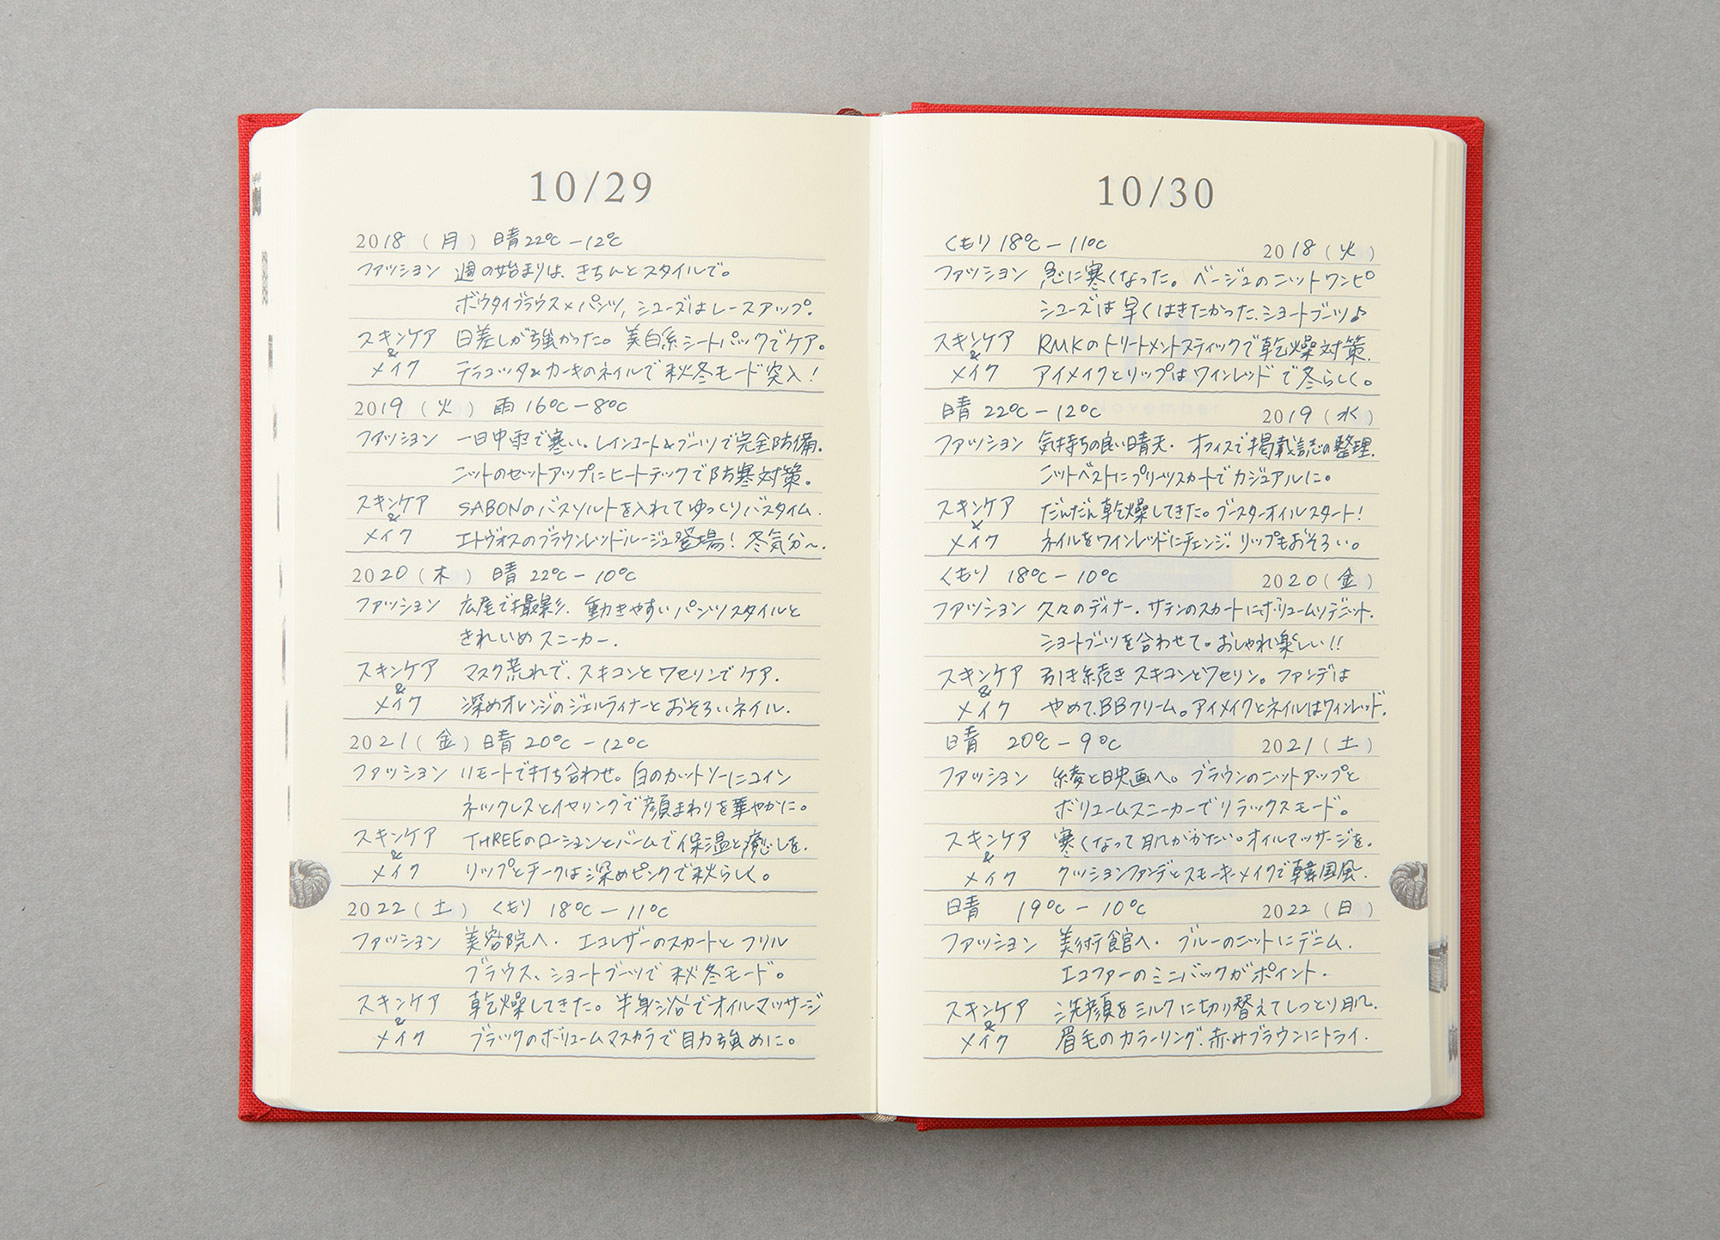 10/29
2018 (月) 晴 22℃ー12℃
ファッション 週の始まりは、きちんとスタイルで。
ボウタイブラウス×パンツ、シューズはレースアップ。
スキンケア 日差しが強かった。美白系シートパックでケア。
&
メイク テラコッタ&カーキのネイルで秋冬モード突入!
2019 (火) 雨 16℃ー8℃
ファッション 一日中雨で寒い。レインコート&ブーツで完全防備。
ニットのセットアップにヒートテックで防寒対策。
スキンケア SABONのバスソルトを入れてゆっくりバスタイム.
&
メイク エトヴォスのブラウンレッドルージュ登場!冬気分〜.
2020 (木) 晴 22℃ー10℃
ファッション 広尾で撮影、動きやすいパンツスタイルと
きれいめスニーカー.
スキンケア マスク荒れで、スキコンとワセリンでケア.
&
メイク 深めオレンジのジェルライナーとおそろいネイル.
2021 (金) 晴 20℃ー12℃
ファッション リモートで打ち合わせ。白のカットソーにコイン
ネックレスとイヤリングで顔まわりを華やかに。
スキンケア THREEのローションとバームで保湿と癒しを.
&
メイク リップとチークは深めピンクで秋らしく。
2022 (土) くもり 18℃ー11℃
ファッション 美容院へ. エコレザーのスカートとフリル
ブラウス、ショートブーツで秋冬モード。
スキンケア 乾燥してきた。半身浴でオイルマッサージ
&
メイク ブラックのボリュームマスカラで目力強めに。
10/30
くもり 18℃ー11℃ 2018 (火)
ファッション 急に寒くなった。ベージュのニットワンピ
シューズは早くはきたかった、ショートブーツ♪
スキンケア RMKのトリートメントスティックで乾燥対策.
&
メイク アイメイクとリップはワインレッドで冬らしく。
晴 22℃ー12℃ 2019 (水)
ファッション 気持ちの良い晴天. オフィスで掲載誌の整理.
ニットベストにプリーツスカートでカジュアルに。
スキンケア だんだん乾燥してきた。ブースターオイルスタート!
&
メイク ネイルをワインレッドにチェンジ.リップもおそろい。
くもり 18℃ー10℃ 2020 (金)
ファッション 久々のディナー.サテンのスカートにボリュームソデニット.
ショートブーツを合わせて。おしゃれ楽しい!!
スキンケア 引き続きスキコンとワセリン。ファンデは
&
メイク やめて、BBクリーム。アイメイクとネイルはワインレッド.
晴 20℃ー9℃ 2021 (土)
ファッション 綾と映画へ。ブラウンのニットアップと
ボリュームスニーカーでリラックスモード。
スキンケア 寒くなって肌がかたい。オイルマッサージを.
&
メイク クッションファンデとスモーキーメイクで韓国風.
晴 19℃ー10℃ 2022 (日)
ファッション 美術館へ. ブルーのニットにデニム.
エコファーのミニバックがポイント.
スキンケア 洗顔をミルクに切り替えてしっとり肌.
&
メイク 眉毛のカラーリング、赤みブラウンにトライ.